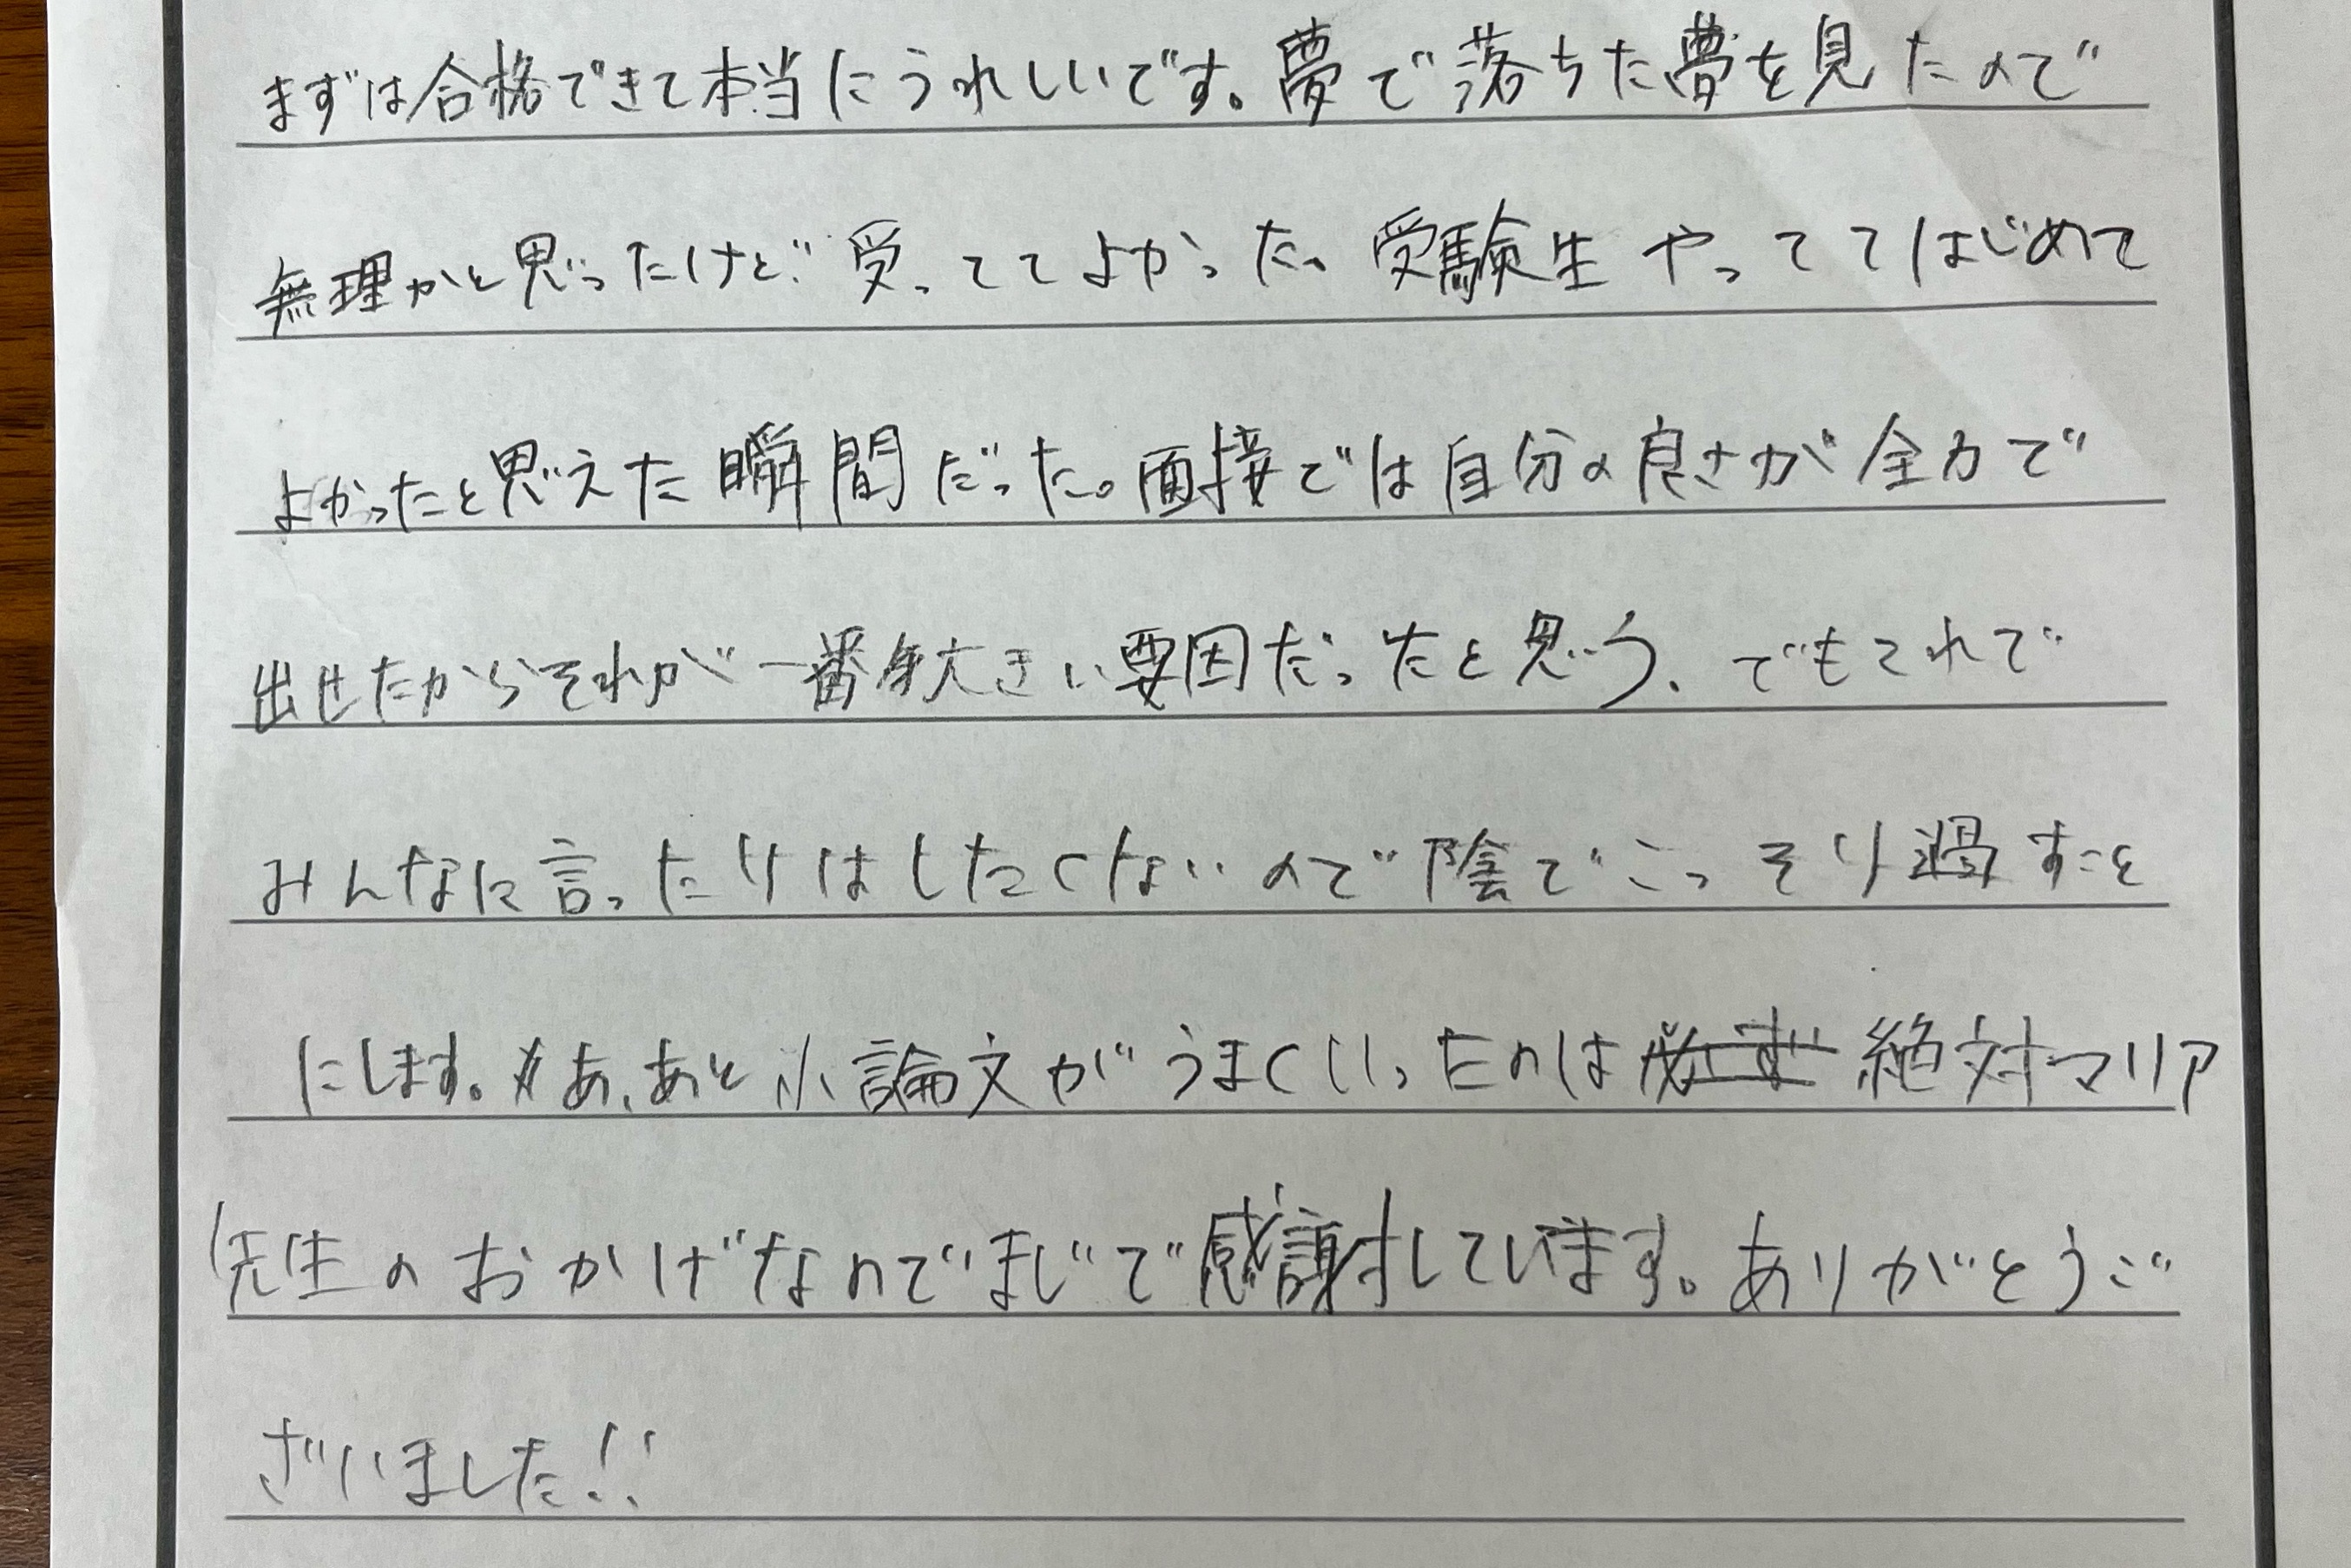 まずは合格できて本当にうれしいです。夢で落ちた夢を見たので
無理かと思ったけど受っててよかった。受験生やっててはじめて
よかったと思えた瞬間だった。面接では自分の良さが全力で
出せたからそれが一番大きい要因だったと思う、でもこれで
みんなに言ったりはしたくないので陰でこっそり過すこと
にします。あ、あと小論文がうまくいったのは絶対マリア
先生のおかげなのでまじで感謝しています。ありがとうご
ざいました!!